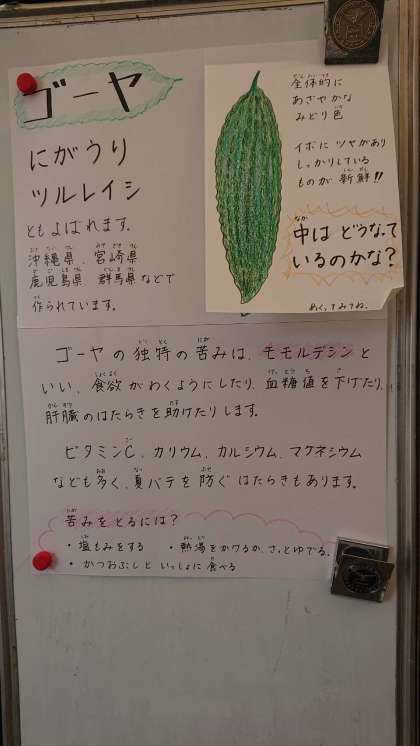 ゴーヤ
にがうり
ツルレイシ
ともよばれます。
沖縄県、宮崎県
鹿児島県、群馬県などで
作られています。
全体的に
あざやかな
みどり色
イボにツヤがあり
しっかりしている
ものが新鮮!!
中はどうなって
いるのかな?
めくってみてね。
ゴーヤの独特の苦みは、モモルデシンと
いい、食欲がわくようにしたり、血糖値を下げたり、
肝臓のはたらきを助けたりします。
ビタミンC、カリウム、カルシウム、マグネシウム
なども多く、夏バテを防ぐはたらきもあります。
苦みをとるには?
・塩もみをする ・熱湯をかけるか、さっとゆでる。
・かつおぶしといっしょに食べる